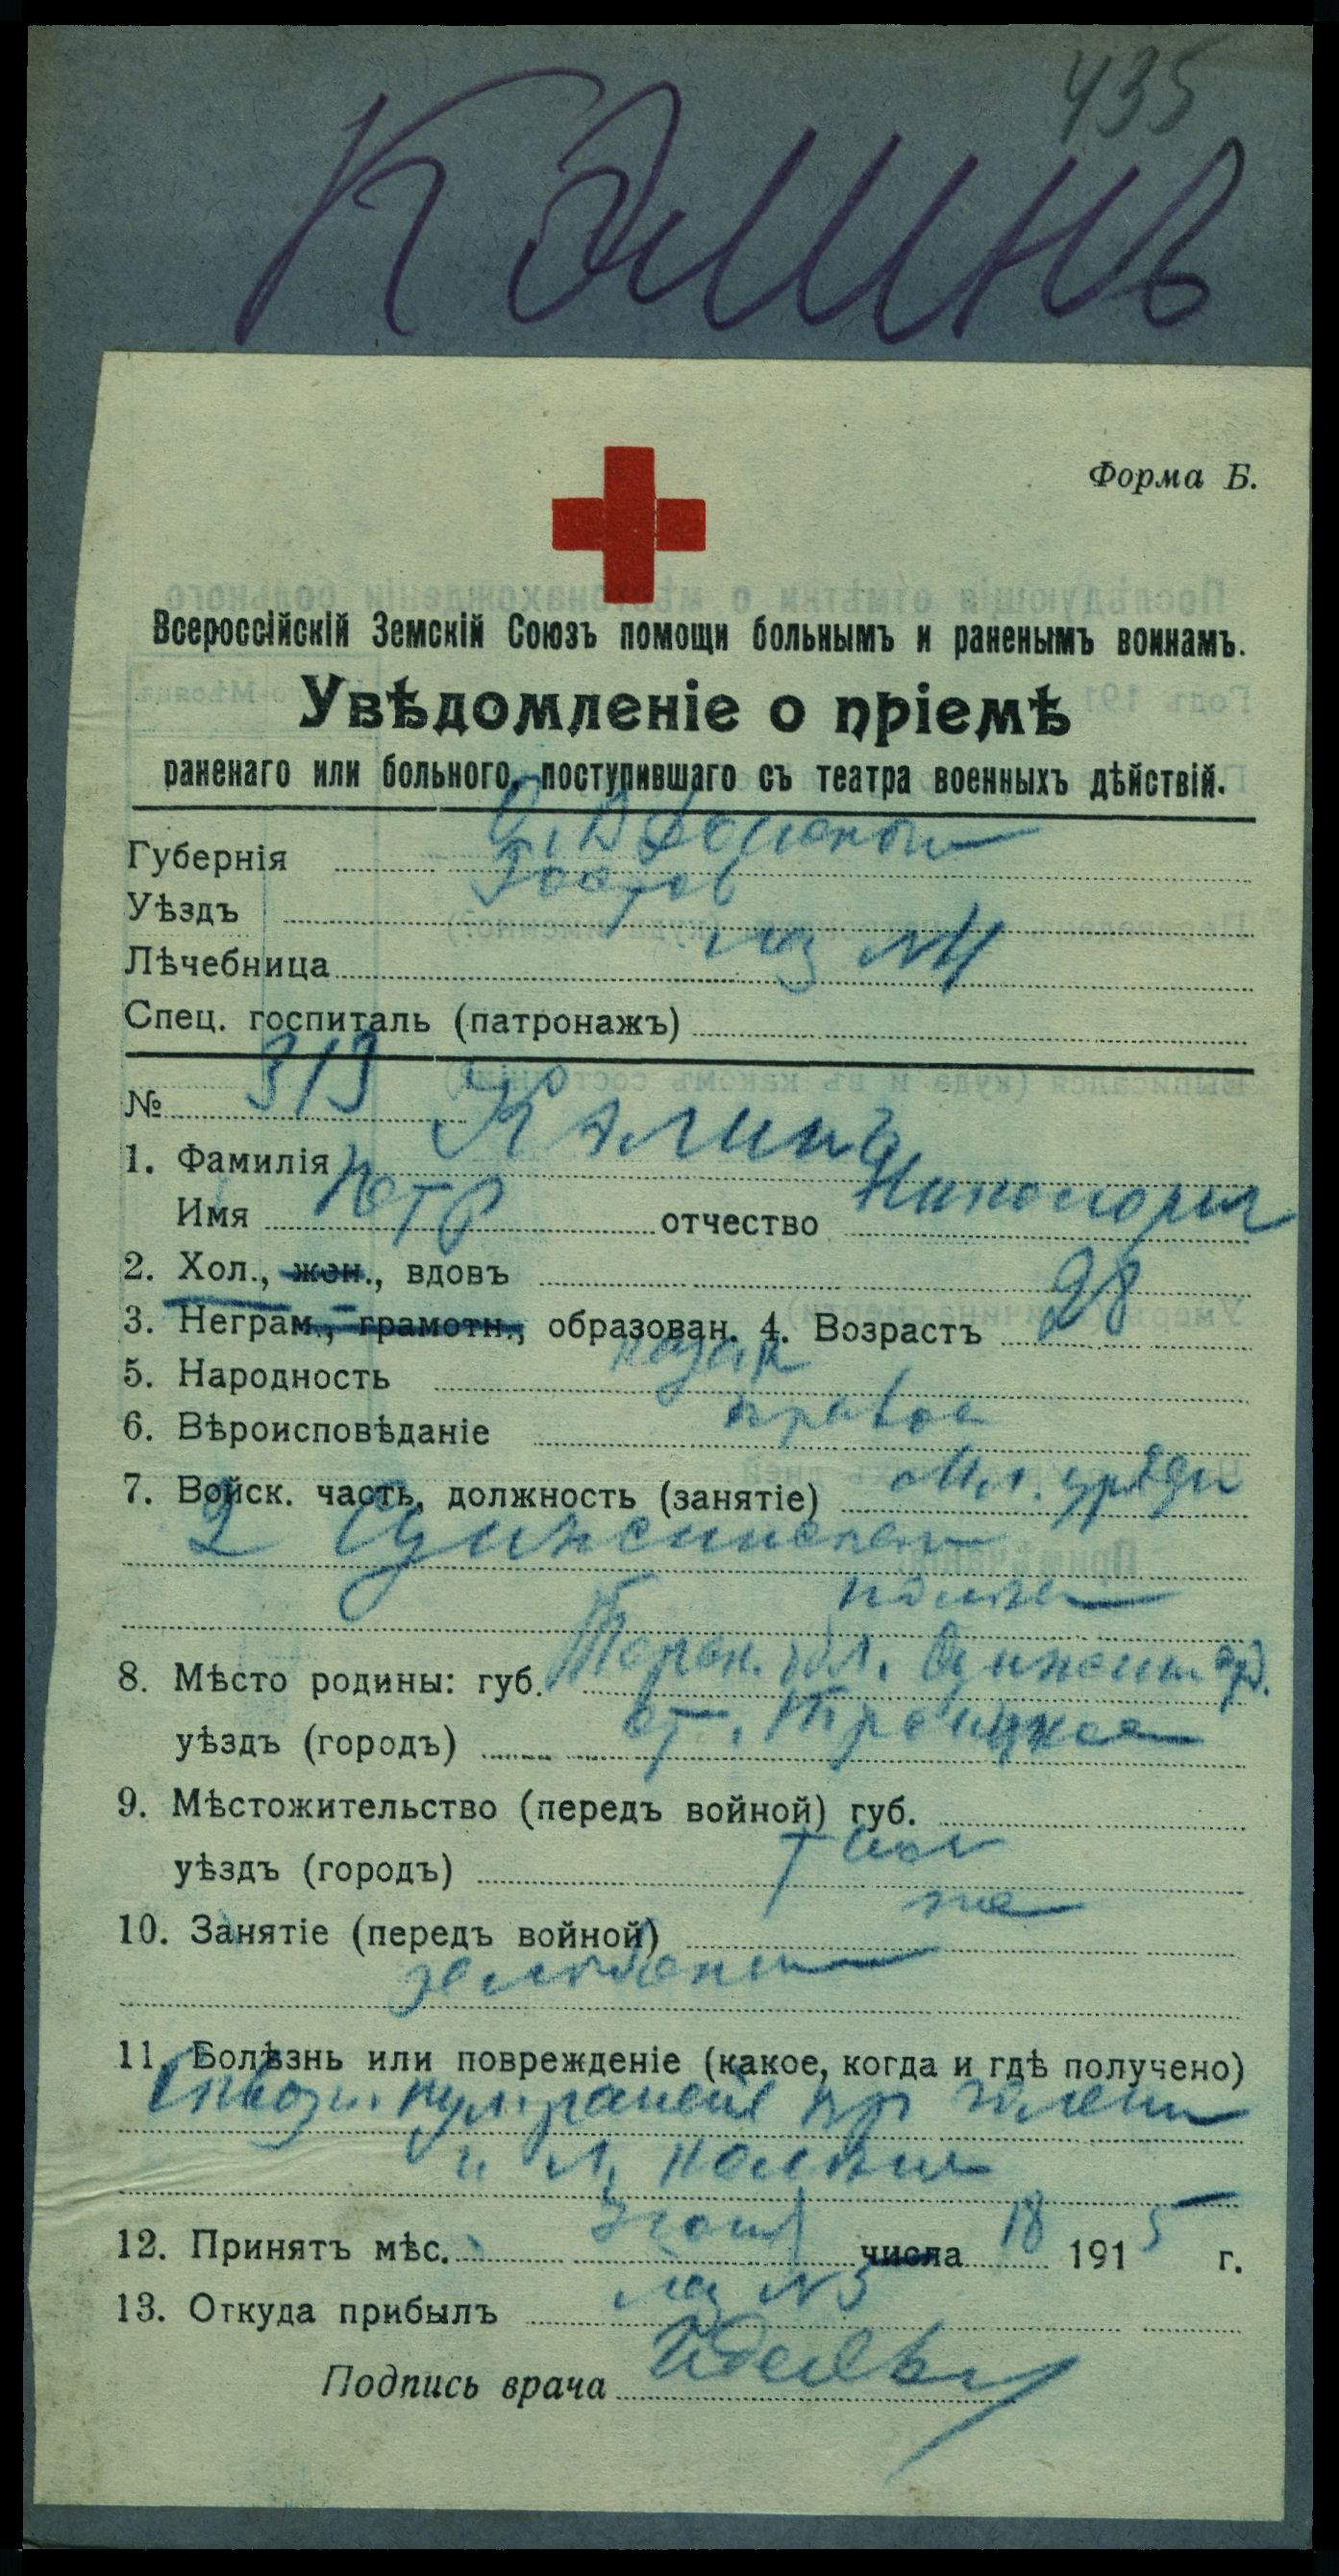 435
Калинъ
Форма Б.
Всероссійскій Земскій Союзъ помощи больнымъ и раненымъ воинамъ.
Увѣдомленіе о пріемѣ
раненаго или больного, поступившаго съ театра военныхъ дѣйствій.
Губернія
Уѣздъ Ростов
Лѣчебница лаз №
Спец. госпиталь (патронажъ)
№ 313
1. Фамилія Калинъ
Имя Петр отчество
2. Хол., жен., вдовъ
3. Неграм., грамотн., образован. 4. Возрастъ 28
5. Народность казак
6. Вѣроисповѣданіе правос
7. Войск. часть, должность (занятіе) Мл. уряди
2 Сунженскаго
полка
8. Мѣсто родины: губ. Терск. обл. Сунженск
уѣздъ (городъ) ст. Троицкая
9. Мѣстожительство (передъ войной) губ.
уѣздъ (городъ)
же
10. Занятіе (передъ войной)
11. Болѣзнь или поврежденіе (какое, когда и гдѣ получено)
Сквозн. пул. ранение пр голени
и л. колена
12. Принятъ мѣс. числа 18 1915 г.
13. Откуда прибылъ лаз №
Подпись врача